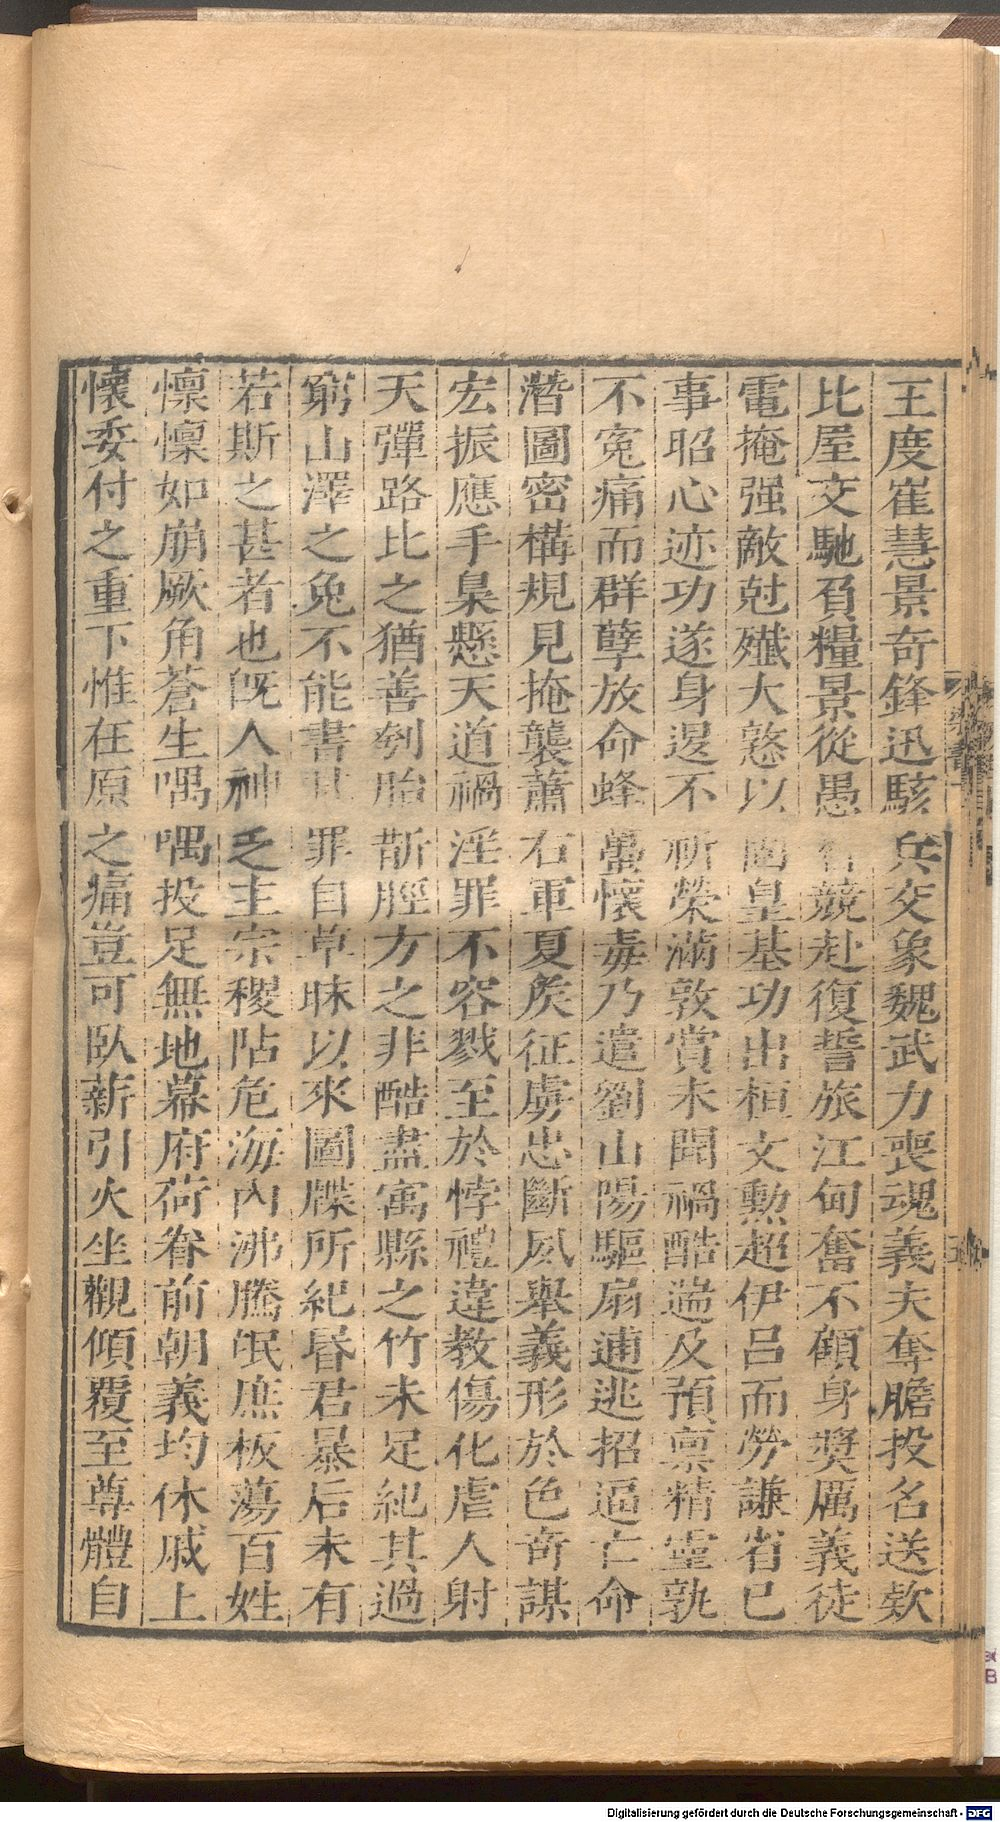 王度崔慧景奇鋒迅駭兵交象魏武力喪魂義夫奪膽投名送款
比屋交馳負糧景從愚智競赴復誓旅江甸奮不顧身奬厲義徒
電掩强敵尅殲大憝以固皇基功出桓文勲超伊呂而勞謙省已
事昭心迹功遂身退不祈榮滿敦賞未聞禍酷遄及預禀精靈孰
不冤痛而群孽放命蜂蠆懷毒乃遣劉山陽驅扇逋逃招逼亡命
潛圖密構規見掩襲蕭右軍夏侯征虜忠斷夙舉義形於色奇謀
宏振應手梟懸天道禍淫罪不容戮至於悖禮違教傷化虐人射
天彈路比之猶善刳胎斮脛方之非酷盡寓縣之竹未足紀其過
窮山澤之兔不能書其罪自草昧以來圖牒所紀昏君暴后未有
若斯之甚者也旣人神乏主宗稷阽危海內沸騰氓庶板蕩百姓
懍懍如崩厥角蒼生喁喁投足無地幕府荷眷前朝義均休戚上
懷委付之重下惟在原之痛豈可臥薪引火坐觀傾覆至尊體自
Digitalisierung gefördert durch die Deutsche Forschungsgemeinschaft - DFG